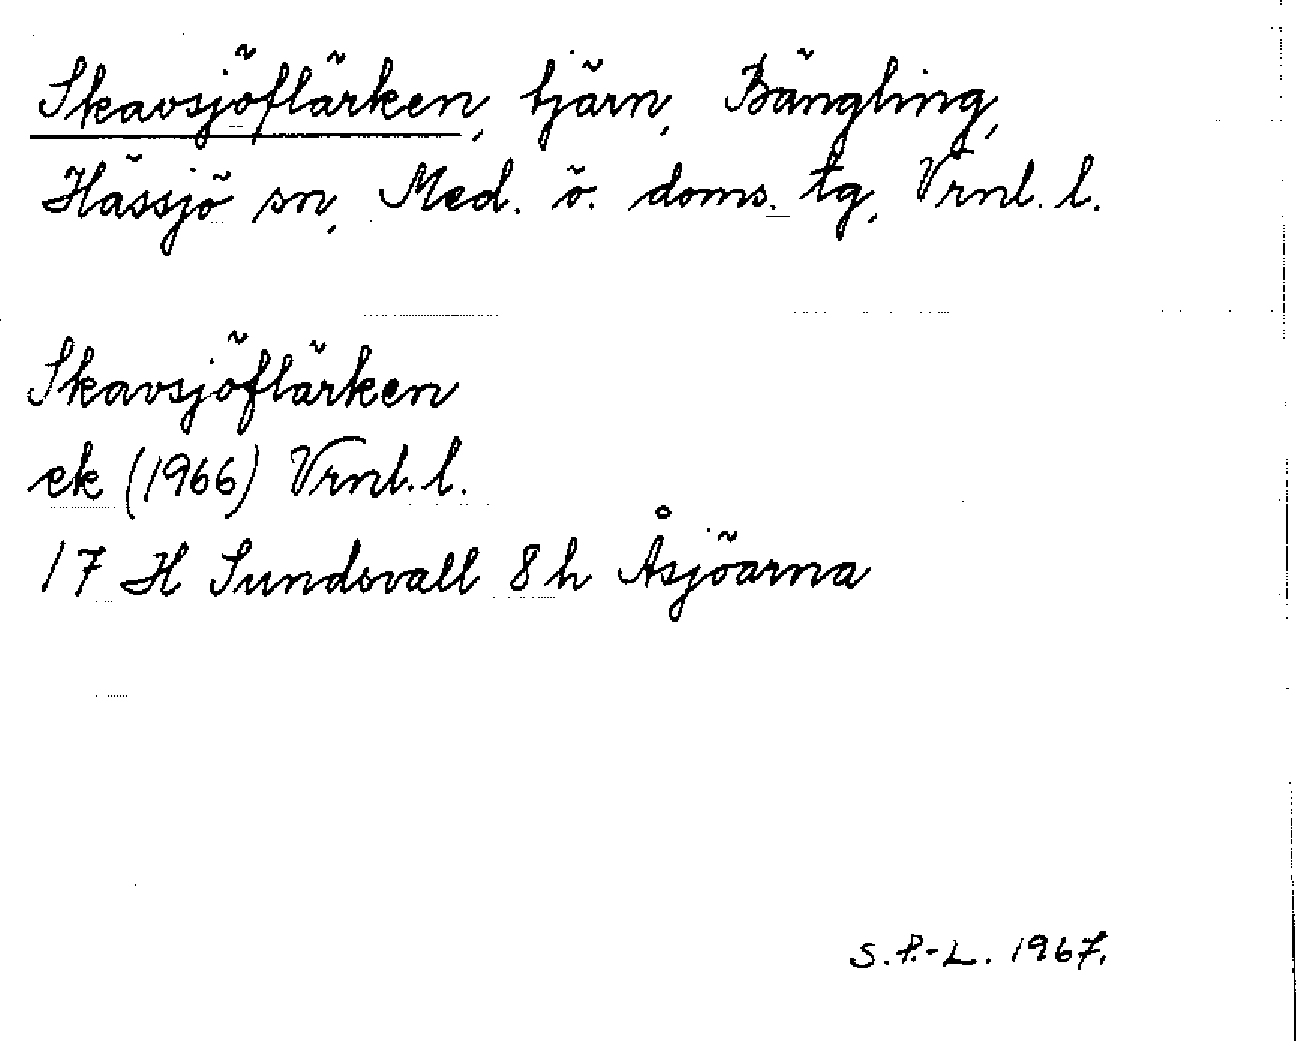 Skavsjöflärken, tjärn, Bängling,
Hässjö sn, Med. ö. doms. tg, Vrnl. l.
Skavsjöflärken
ek (1966) Vrnl. l.
17 H Sundsvall 8h Åsjöarna
S. P.-L. 1967.